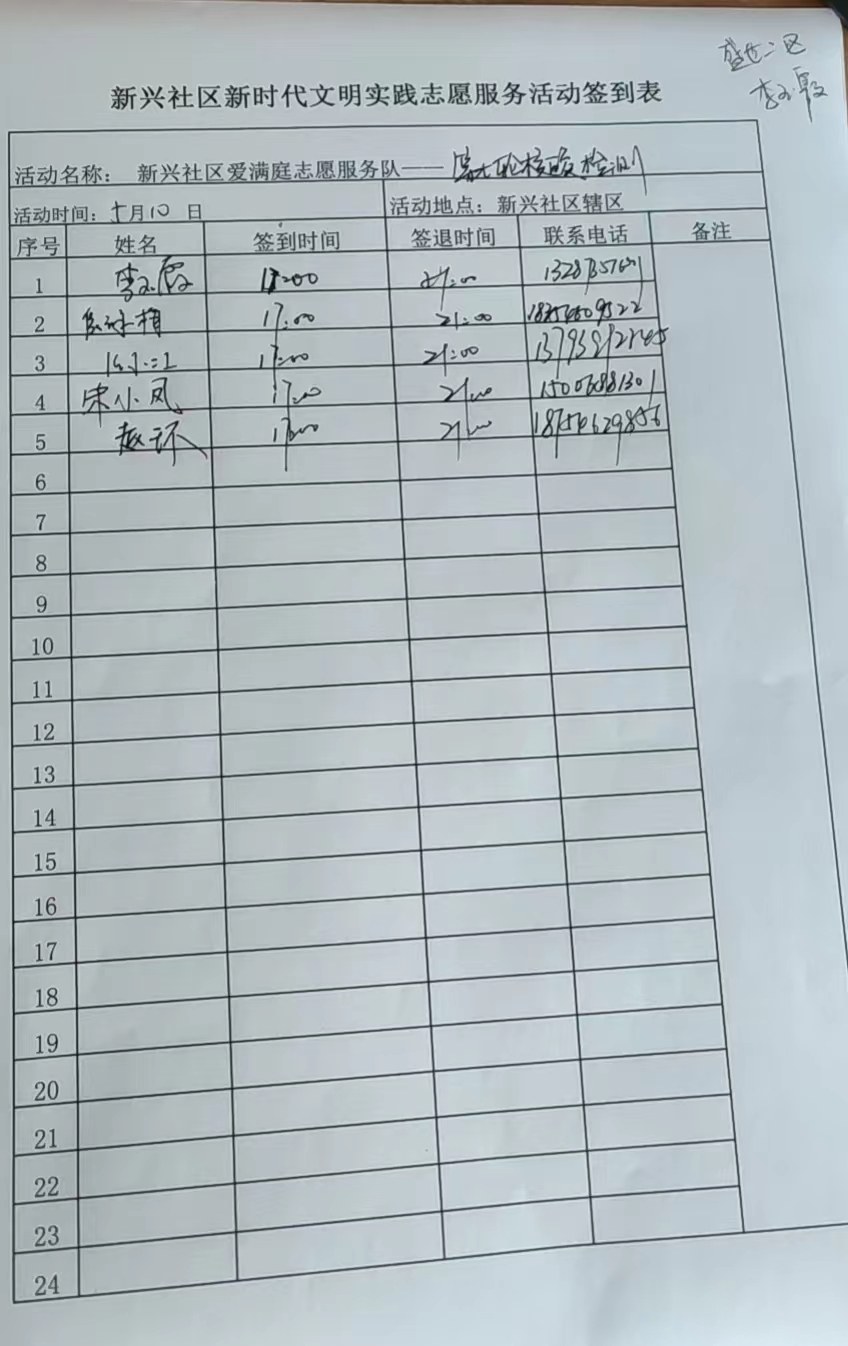 盛世二区
李玉霞
新兴社区新时代文明实践志愿服务活动签到表
活动名称： 新兴社区爱满庭志愿服务队—— 轮核酸检测
活动时间：5月10 日 活动地点：新兴社区辖区
序号 姓名 签到时间 签退时间 联系电话 备注
1 李玉霞 17:00 21:00
2 17:00 21:00
3 17:00 21:00
4 宋小凤 17:00 21:00 15006881301
5 赵环 17:00 21:00 18754629856
6
7
8
9
10
11
12
13
14
15
16
17
18
19
20
21
22
23
24